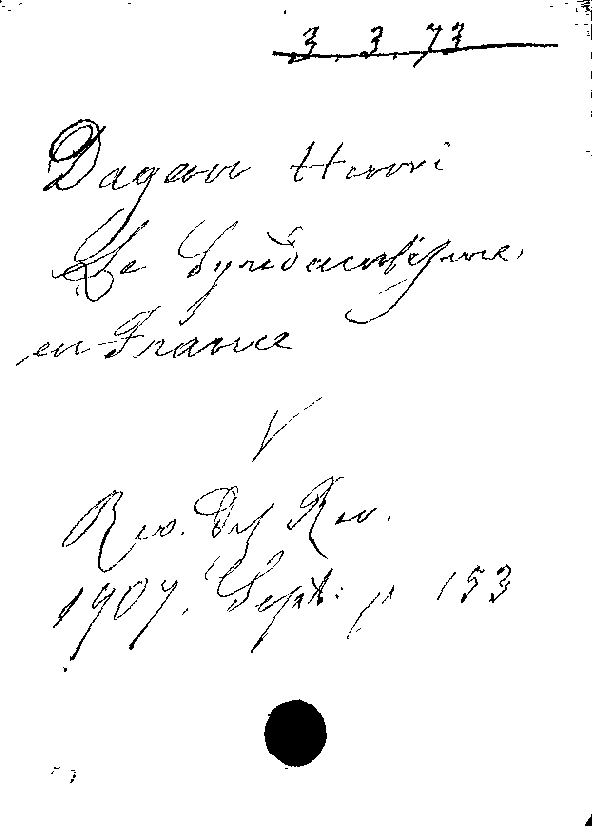 3.3.73
Dagan Henri
Le Syndicalisme
en France
V
Rev. Des Rev.
1907. Sept: p 153